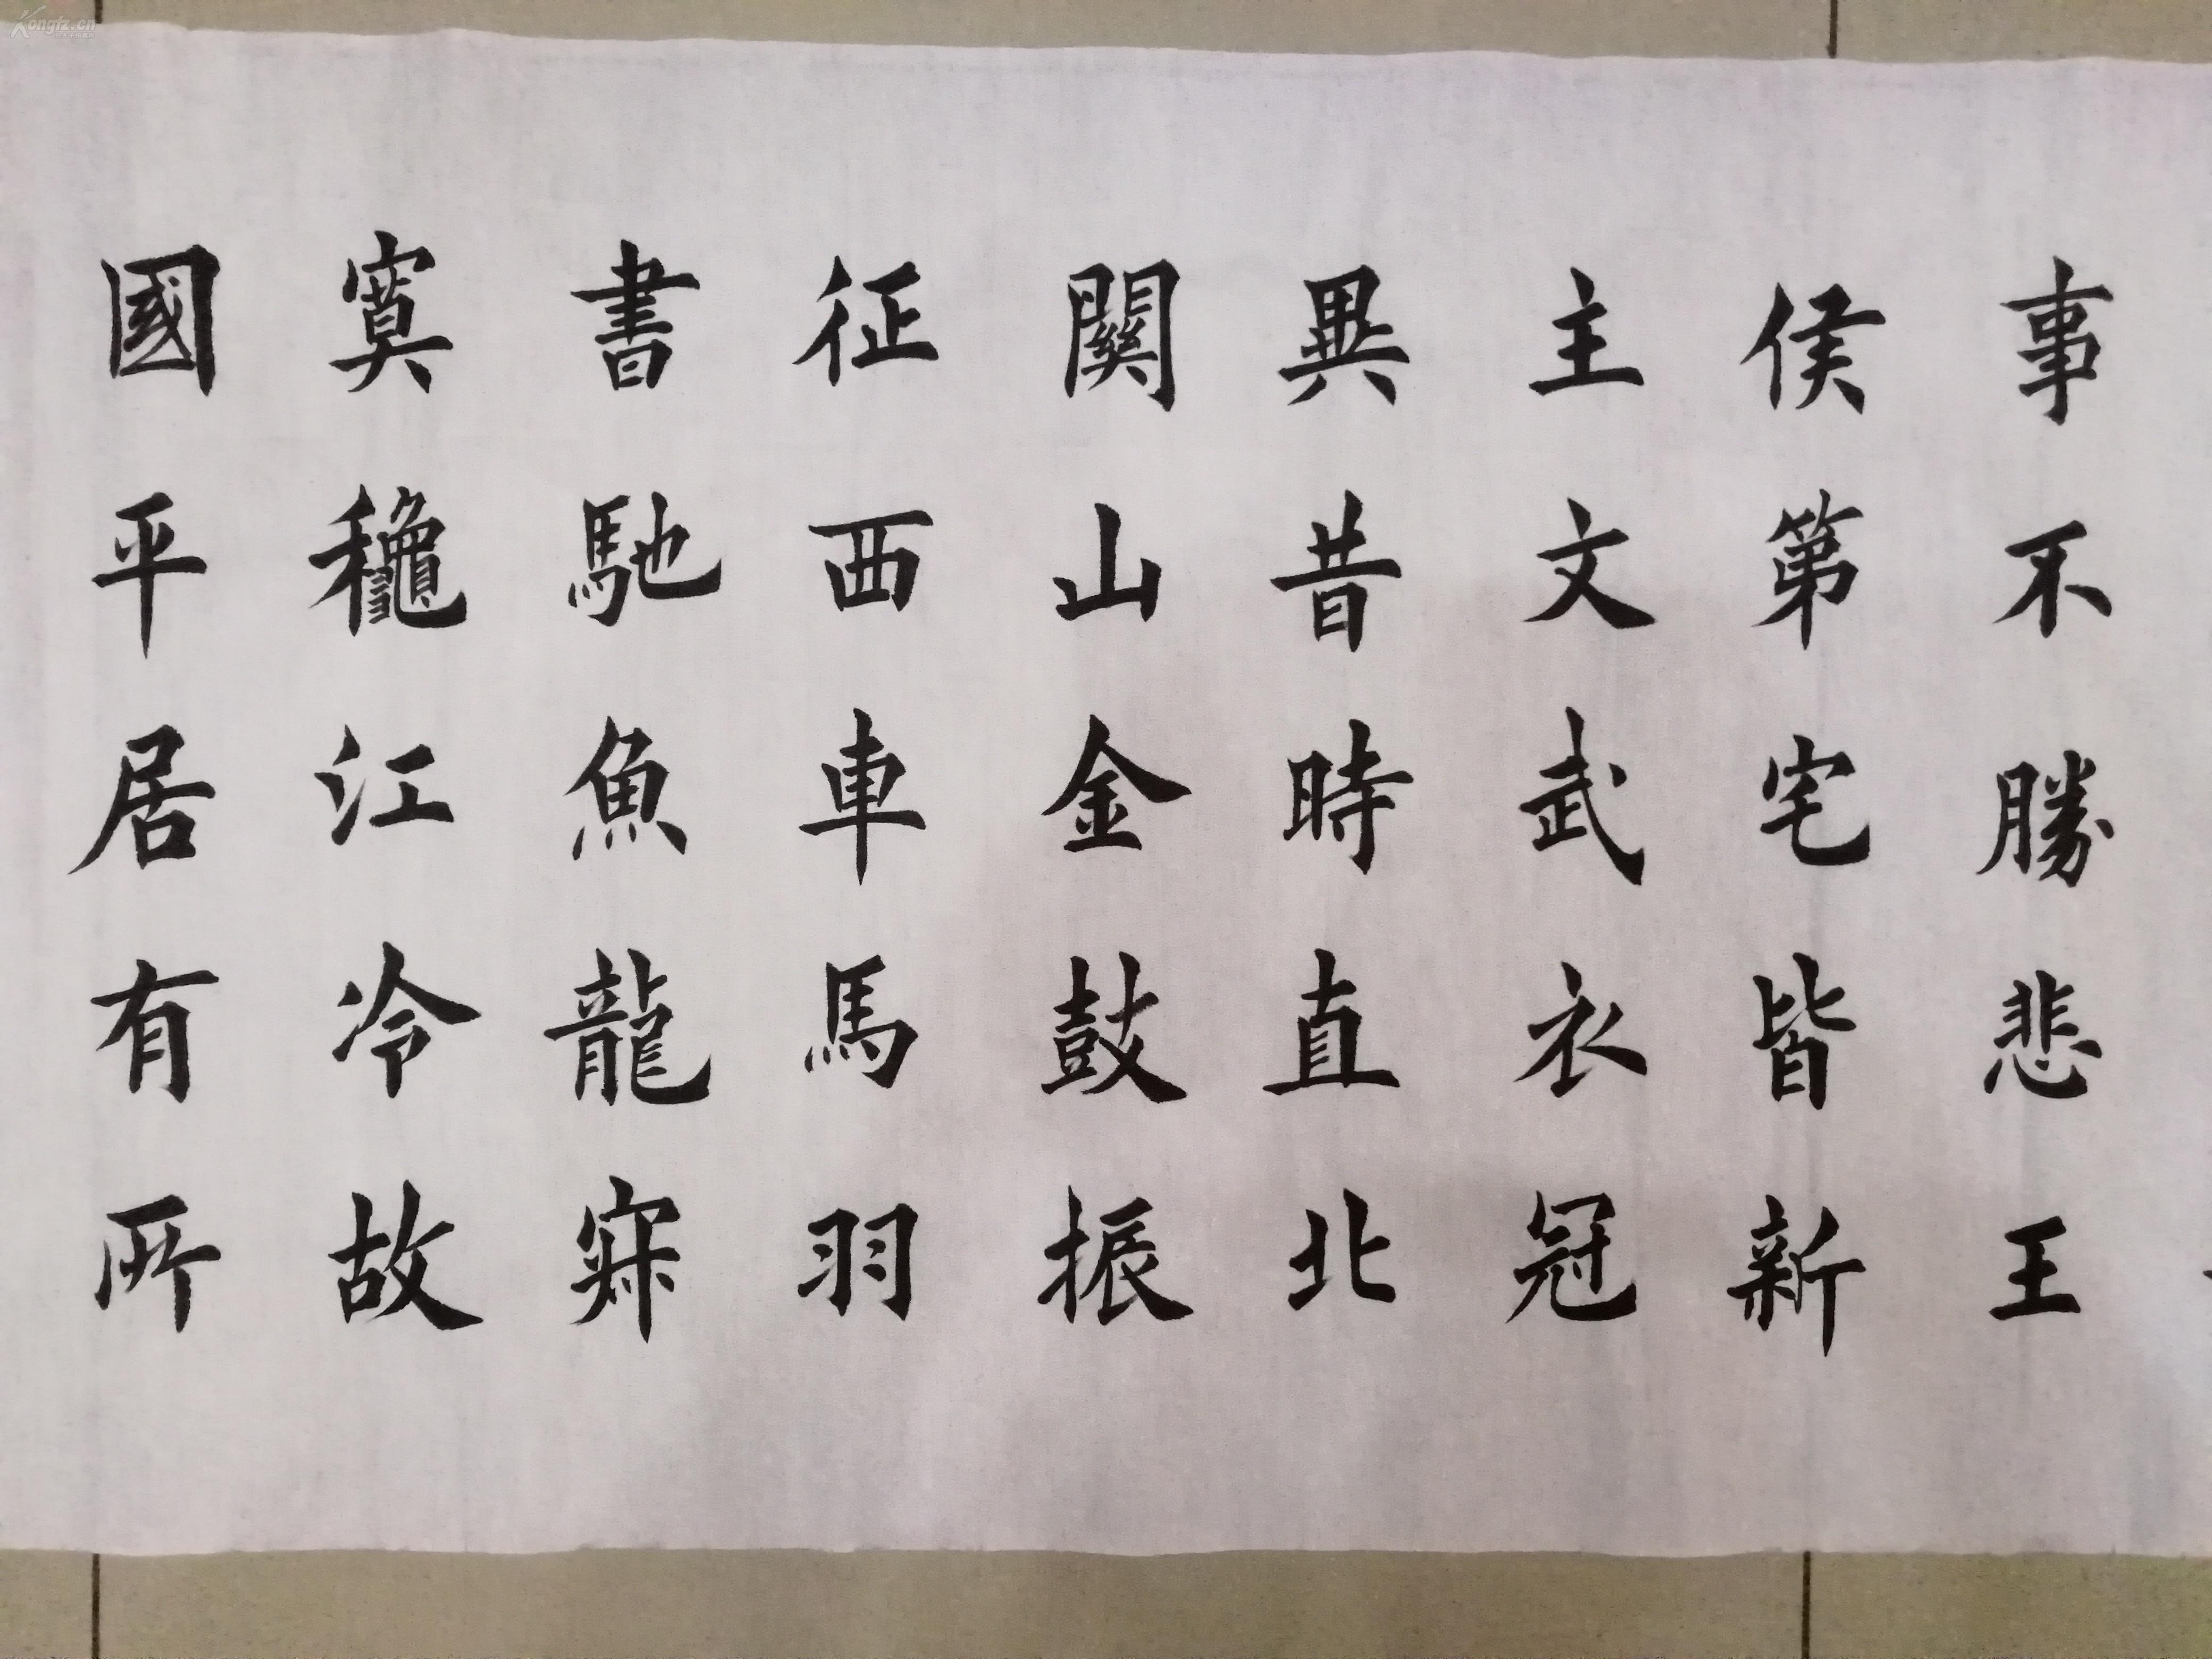 事不勝悲王
侯第宅皆新
主文武衣冠
異昔時直北
關山金鼓振
征西車馬羽
書馳魚龍寂
寞龝江冷故
國平居有所
Kongfz.cn